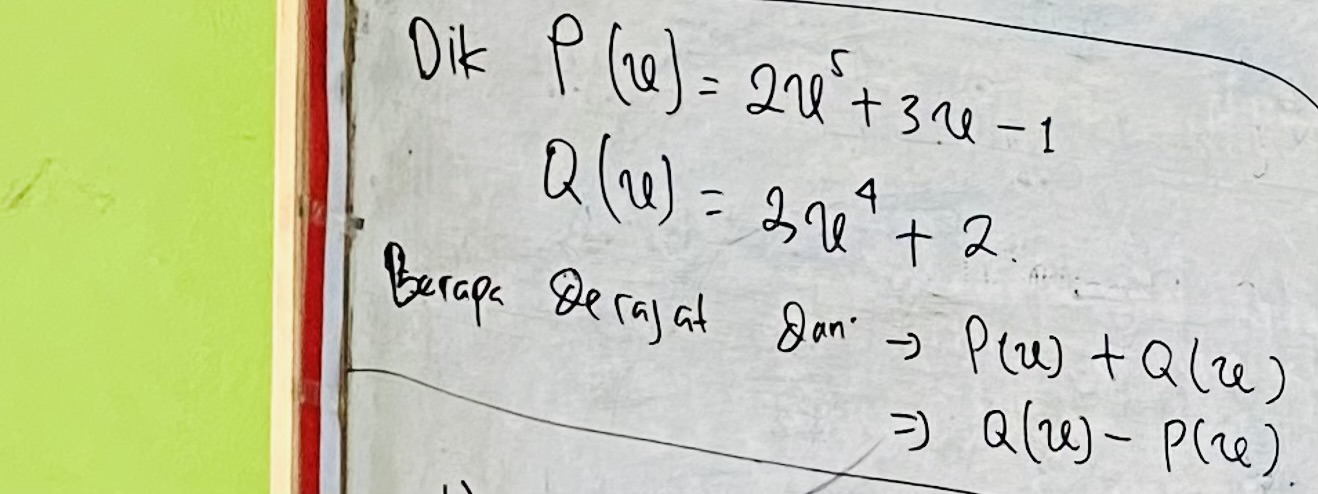 Dik P(x) = 2x⁵ + 3x - 1
Q(x) = 3x⁴ + 2.
Berapa Derajat Dari → P(x) + Q(x)
⇒ Q(x) - P(x)